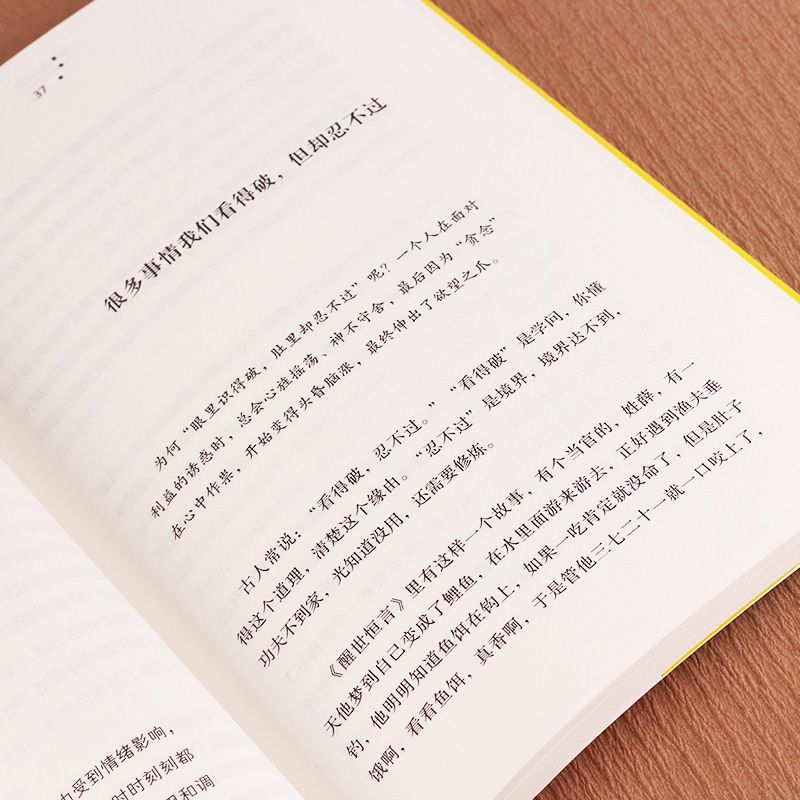 37
很多事情我们看得破，但却忍不过
为何“眼里识得破，肚里却忍不过”呢？一个人在面对
利益的诱惑时，总会心旌摇荡、神不守舍，最后因为“贪念”
在心中作祟，开始变得头昏脑涨，最终伸出了欲望之爪。
古人常说：“看得破，忍不过。”“看得破”是学问，你懂
得这个道理，清楚这个缘由。“忍不过”是境界，境界达不到，
功夫不到家，光知道没用，还需要修炼。
《醒世恒言》里有这样一个故事，有个当官的，姓薛，有一
天他梦到自己变成了鲤鱼，在水里面游来游去，正好遇到渔夫垂
钓，他明明知道鱼饵在钩上，如果一吃肯定就没命了，但是肚子
饿啊，看看鱼饵，真香啊，于是管他三七二十一就一口咬上了，
力受到情绪影响，
时时刻刻都
和调